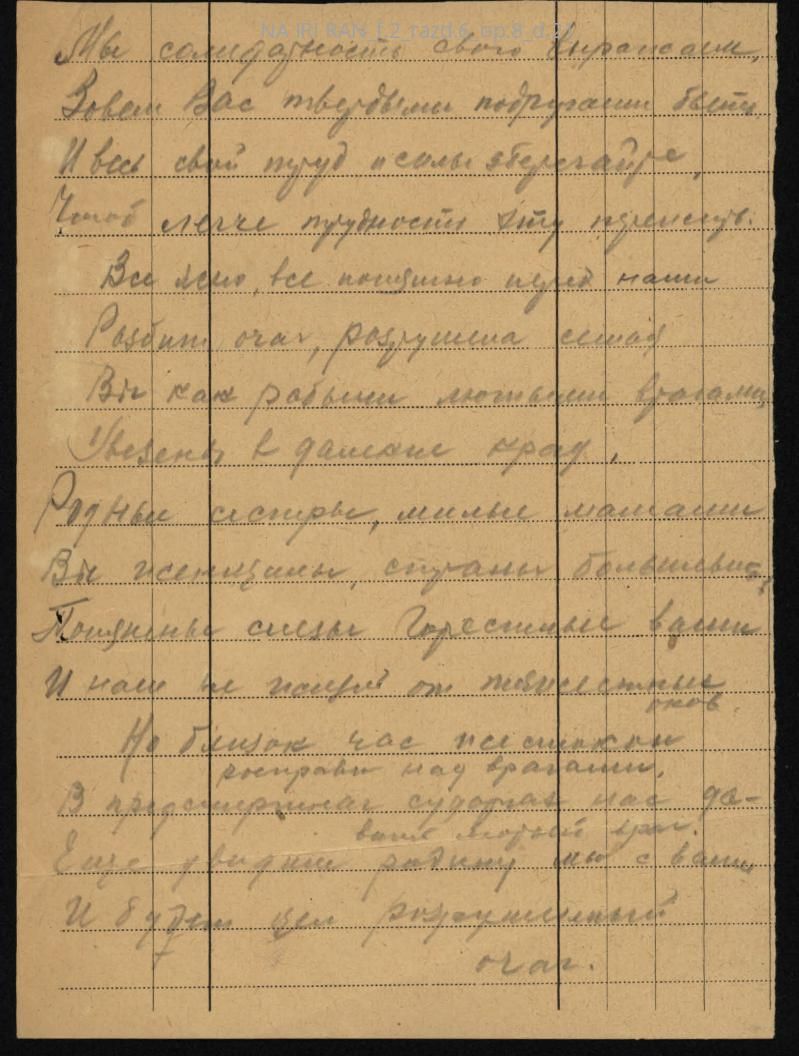 NA IRI RAN_f.2_razd.6_op.8_d.2
Мы солидарность свою выражаем,
Зовем Вас твердыми подругами быть
И весь свой труд и силы сберегайте,
Чтоб легче трудности эту перенесть.
Все ясно, все понятно перед нами
Розбит очаг, розрушена семья
Вы как рабыни лютыми врагами
Увезены в далекие края,
Родные сестры, милые мамаши
Вы женщины, страны большевиков,
Понятны слезы горестные ваши
И нам не от тяжестных
оков.
Но близок час жестокой
росправы над врагами,
В предсмертных судорогах нас да-
вит лютый враг.
Еще увидим родину мы с вами
И будет цел розрушенный
очаг.